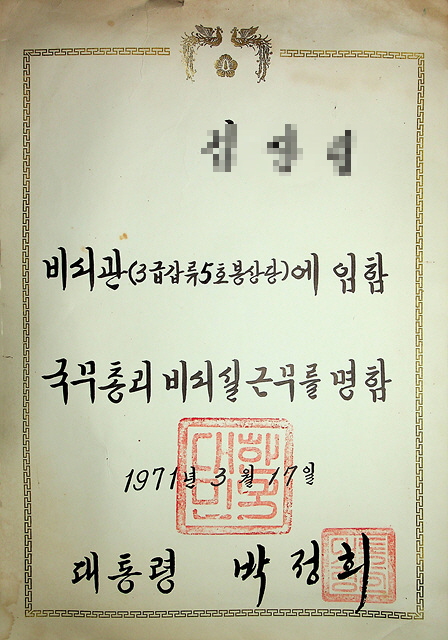 비서관(3급갑류5호봉상당)에 임함
국무총리 비서실 근무를 명함
대한
민국
1971년 3월 17일
대통령 박정희